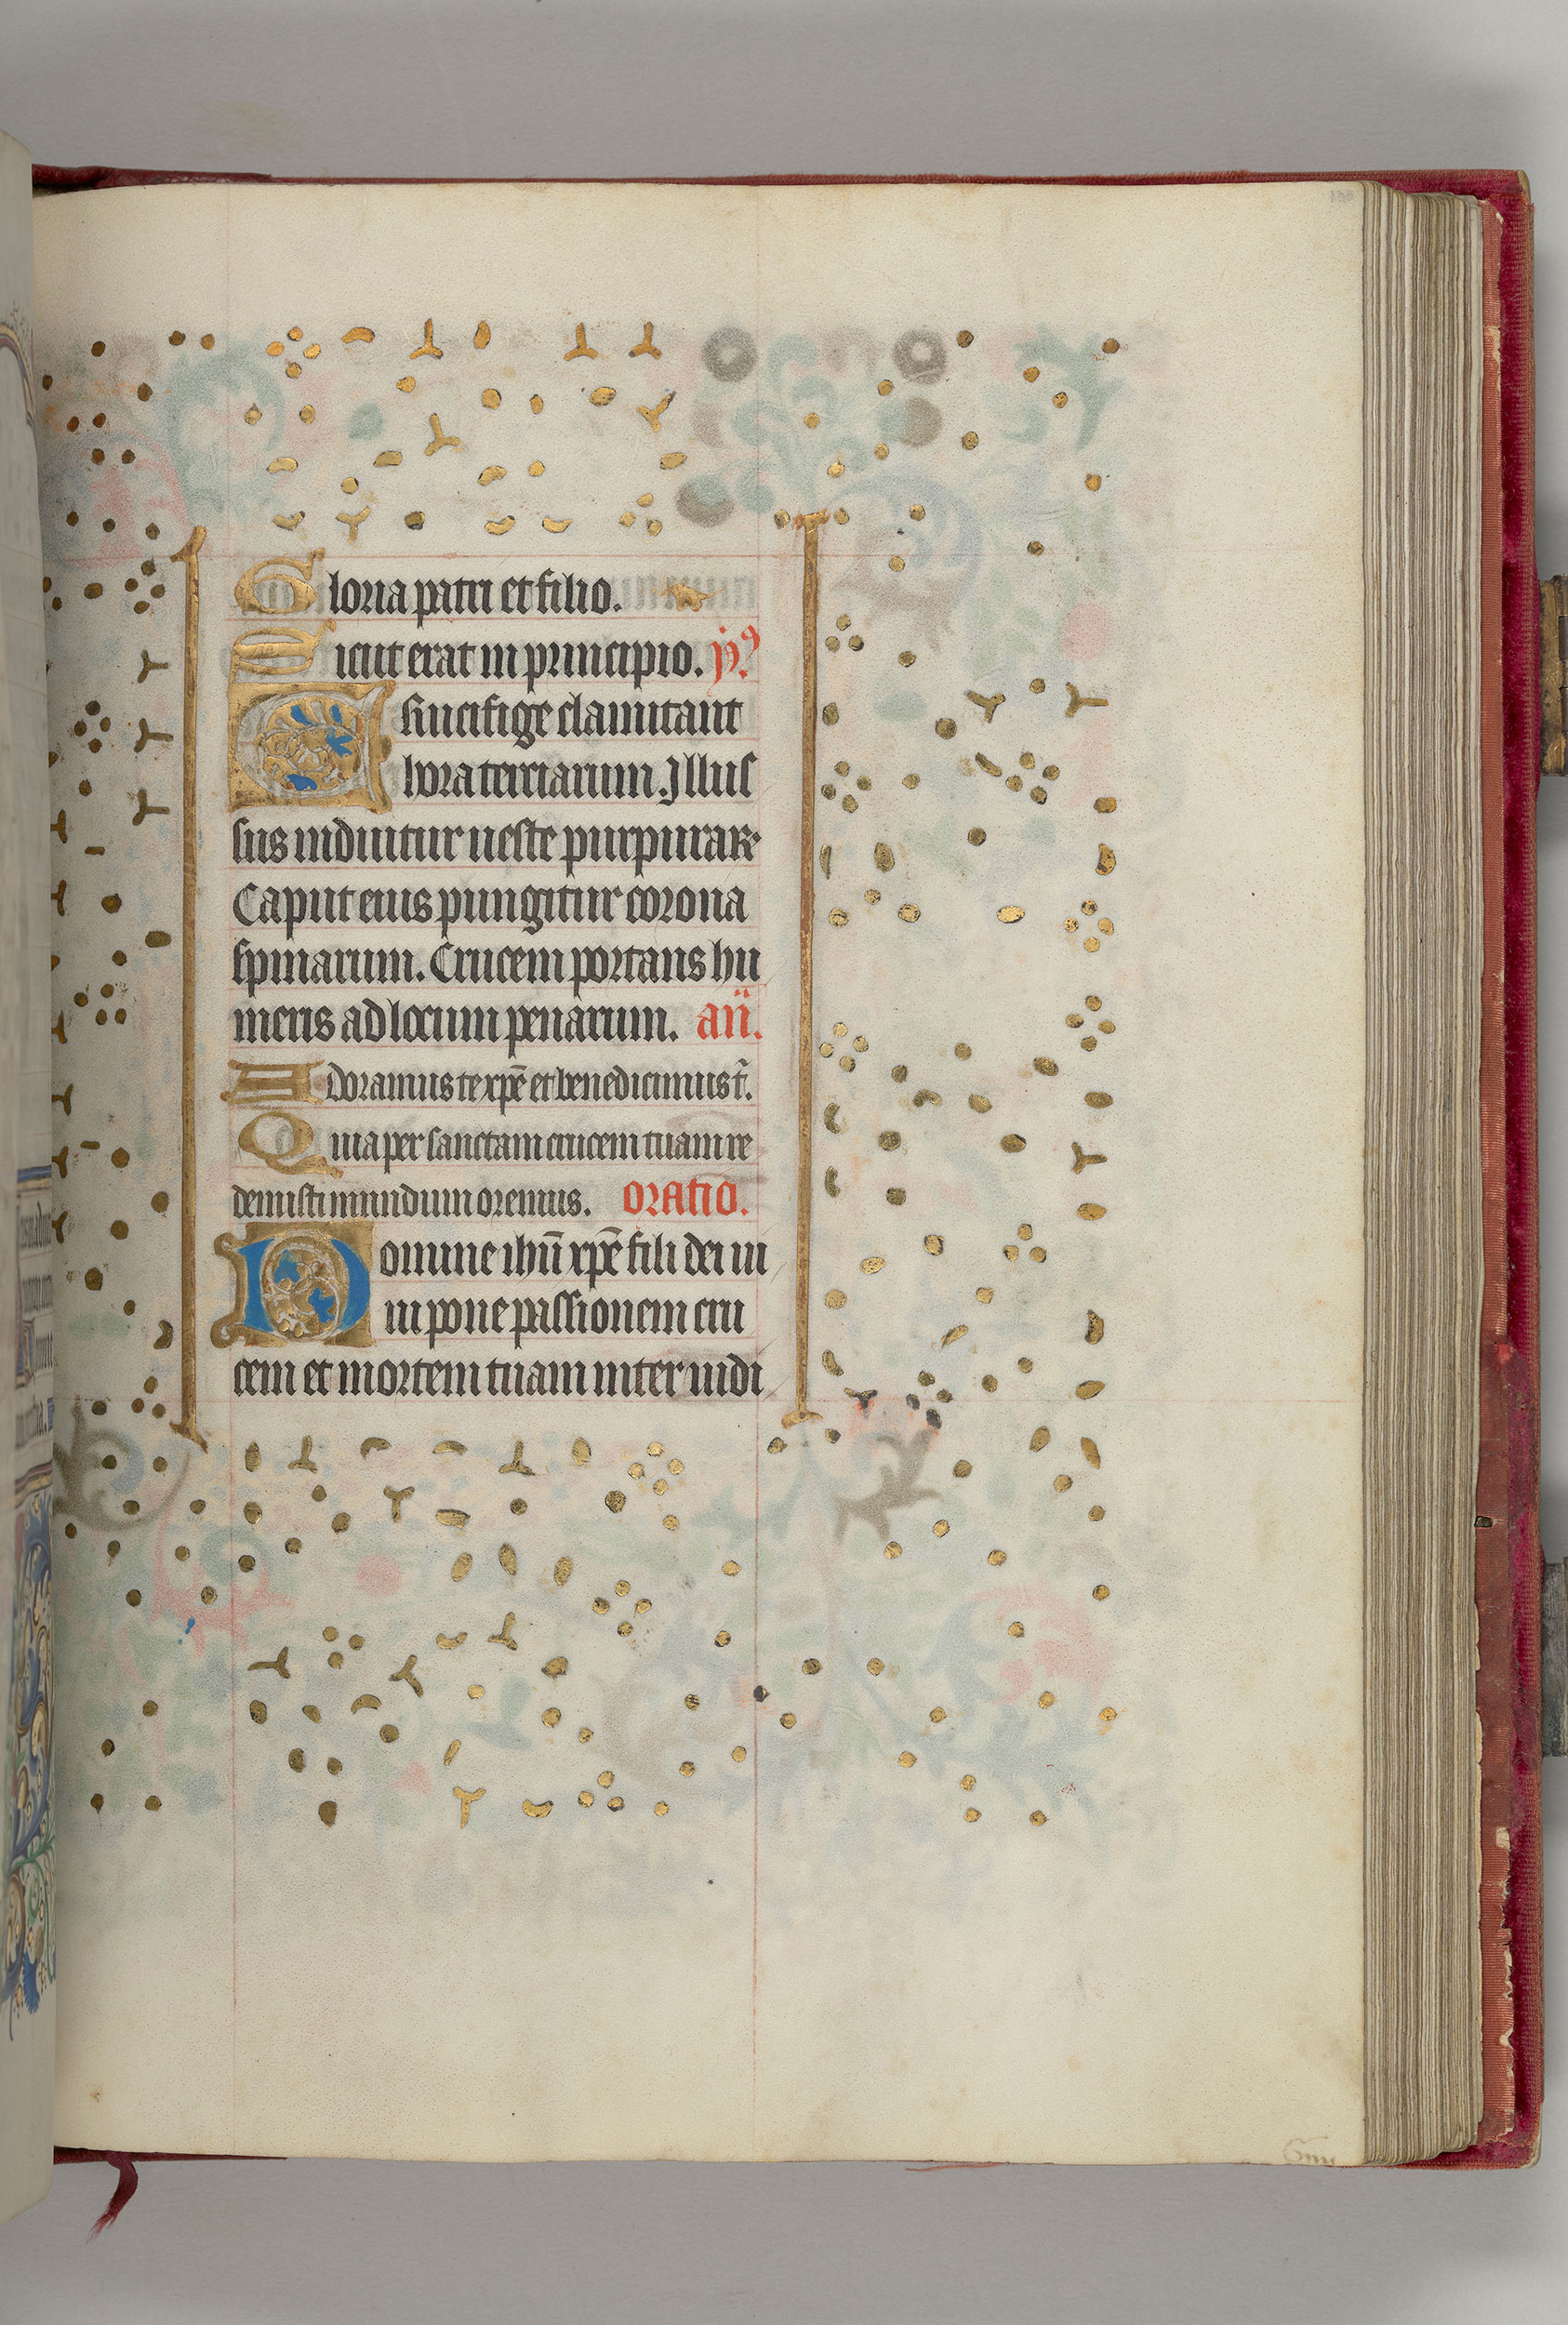 Gloria patri et filio.
Sicut erat in principio. ỹꝰ
Crucifige clamitant
hora terciarum. Illus
sus induitur ueste purpurar
Caput eius pungitur corona
spinarum. Crucem portans hu
meris ad locum penarum. añ.
Adoramus te xp̄e et benedicimus t̄.
Quia per sanctam crucem tuam re
demisti mundum oremus. oratio.
Domine ihū xp̄e fili dei ui
ui pone passionem cru
cem et mortem tuam inter iudi